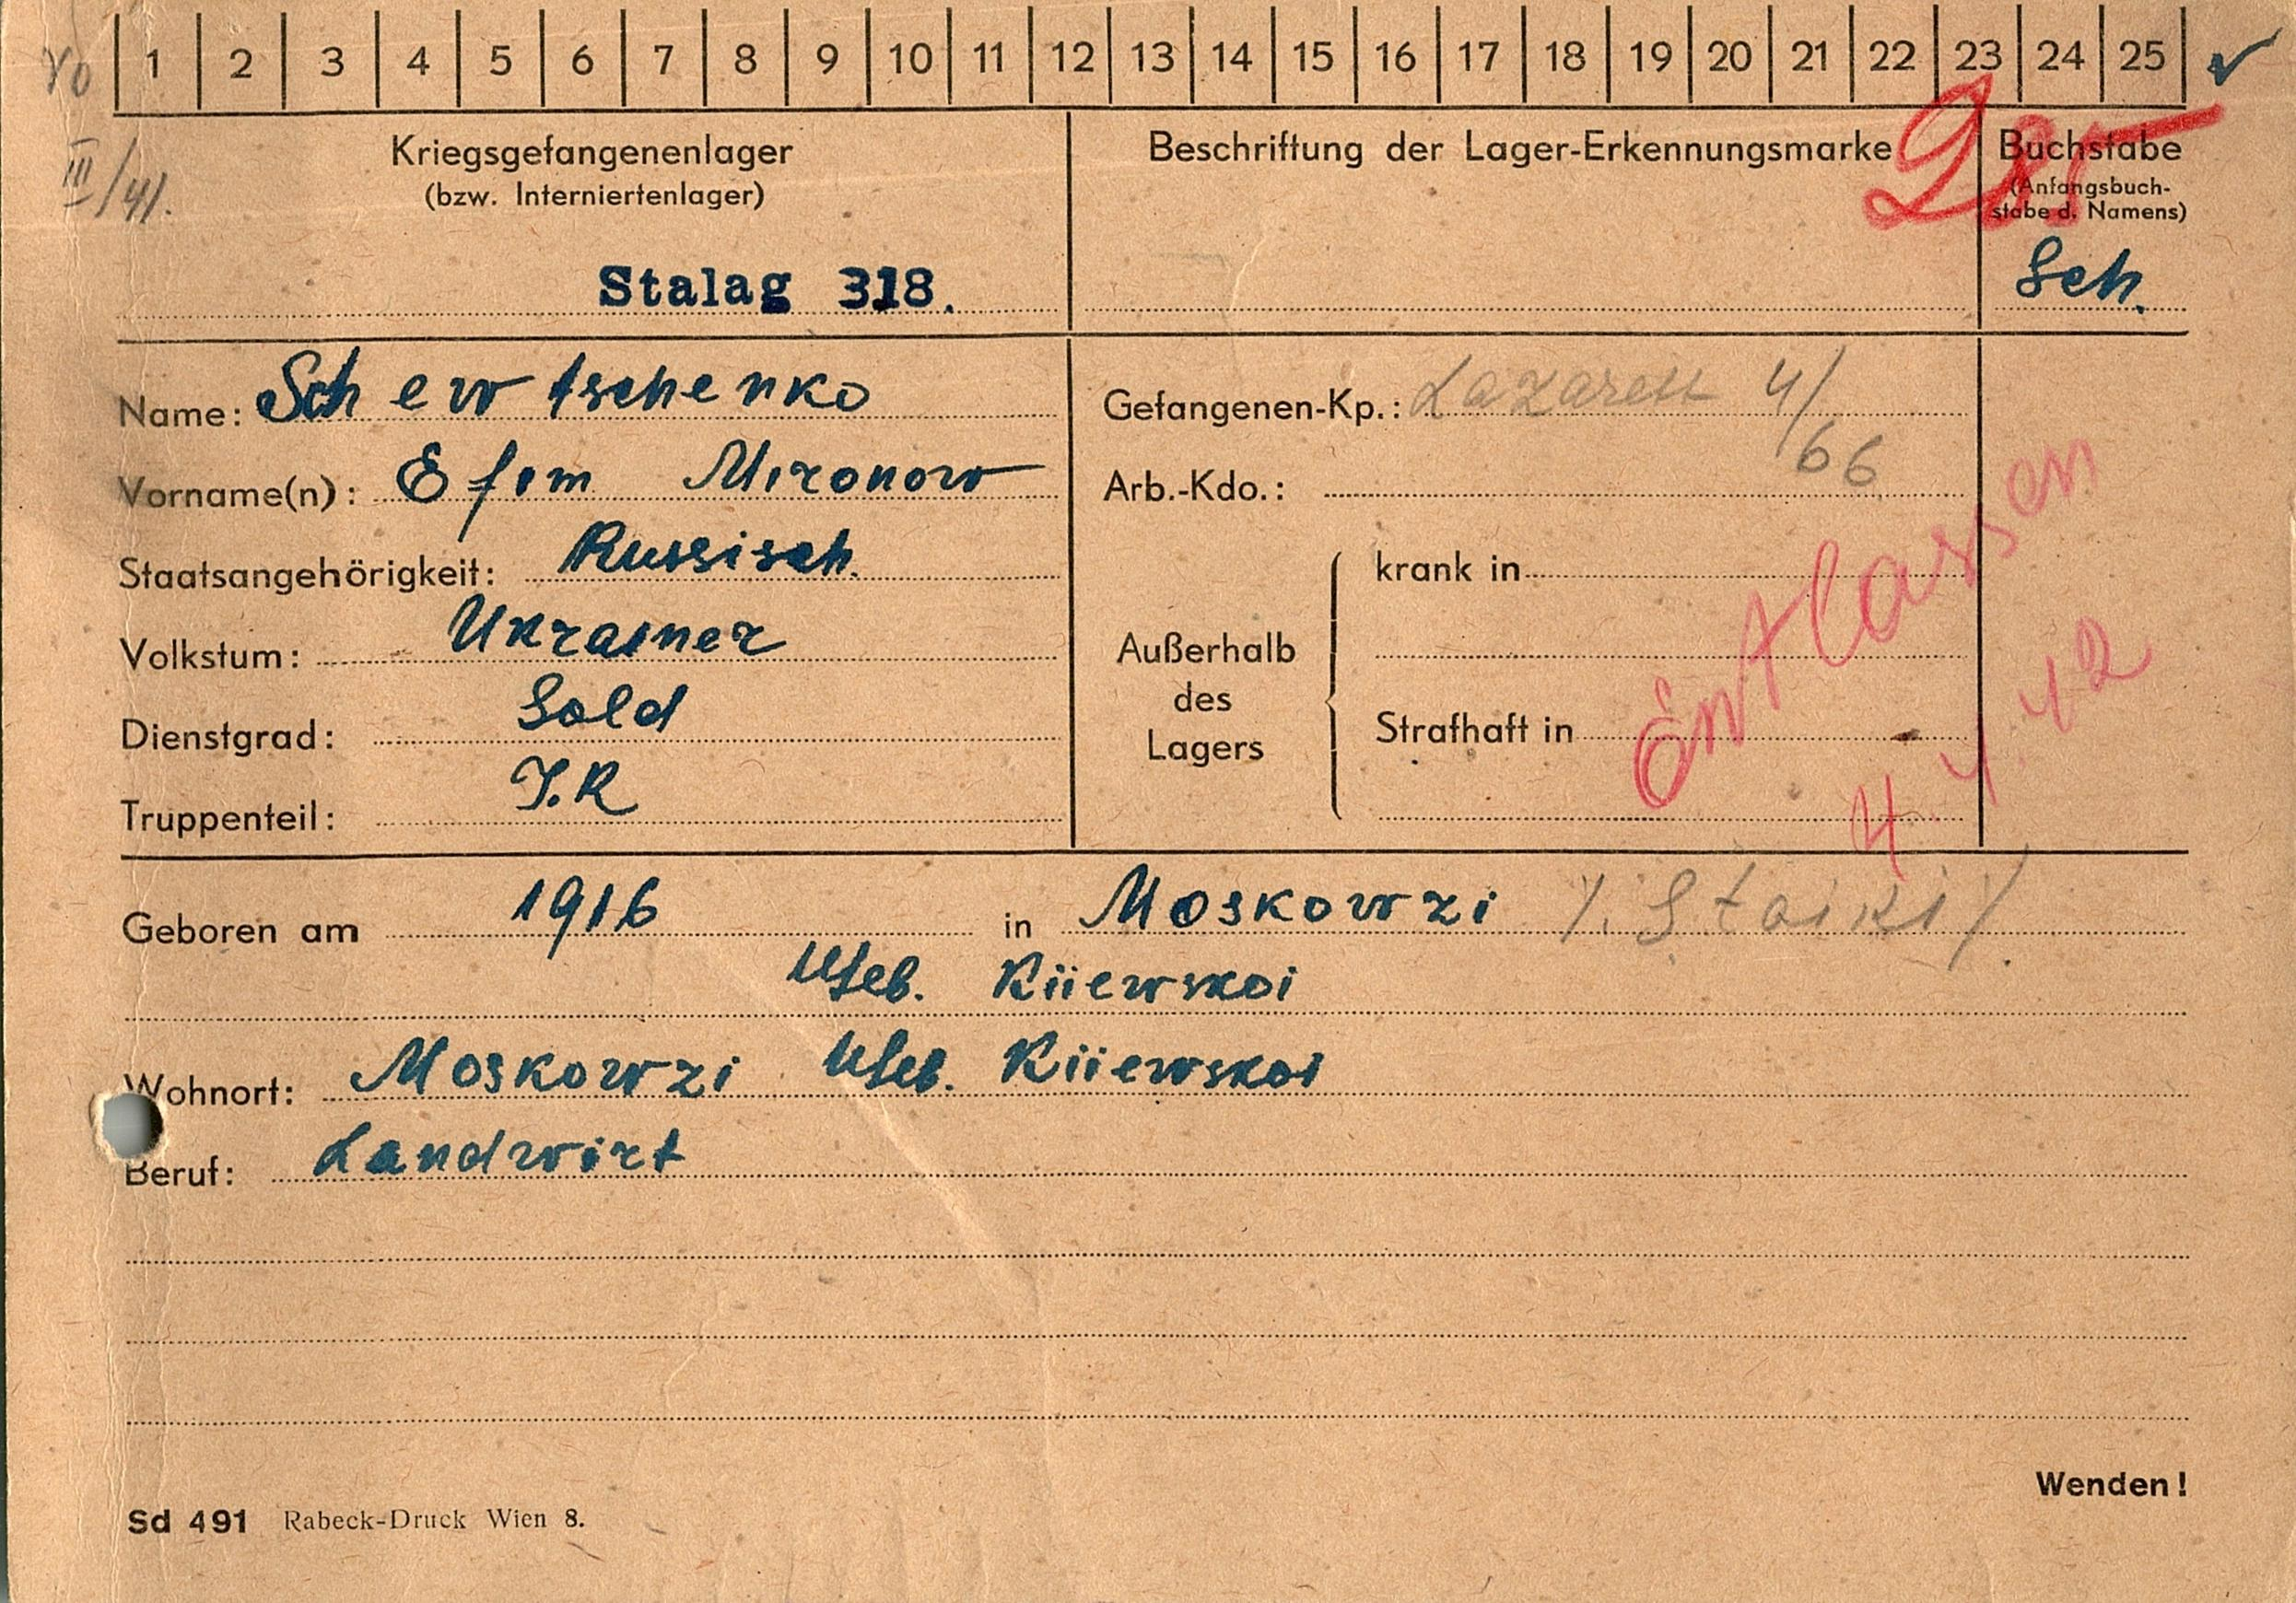 1 2 3 4 5 6 7 8 9 10 11 12 13 14 15 16 17 18 19 20 21 22 23 24 25
III/41.
Kriegsgefangenenlager
(bzw. Interniertenlager)
Stalag 318.
Beschriftung der Lager-Erkennungsmarke
Buchstabe
(Anfangsbuch-
stabe d. Namens)
Sch.
Name: Schewtschenko
Vorname(n): Efim Mironow
Staatsangehörigkeit: Russisch.
Volkstum: Ukrainer
Dienstgrad: Sold
Truppenteil: J.R
Gefangenen-Kp.: Lazarett 4/
66
Arb.-Kdo.:
Außerhalb
des
Lagers
krank in
Strafhaft in
Entlassen
4.4.42
Geboren am 1916 in Moskowzi /. Staiki/.
Kiiewskoi
Wohnort: Moskowzi Kiiewskoi
Beruf: Landwirt
Wenden!
Sd 491 Rabeck-Druck Wien 8.